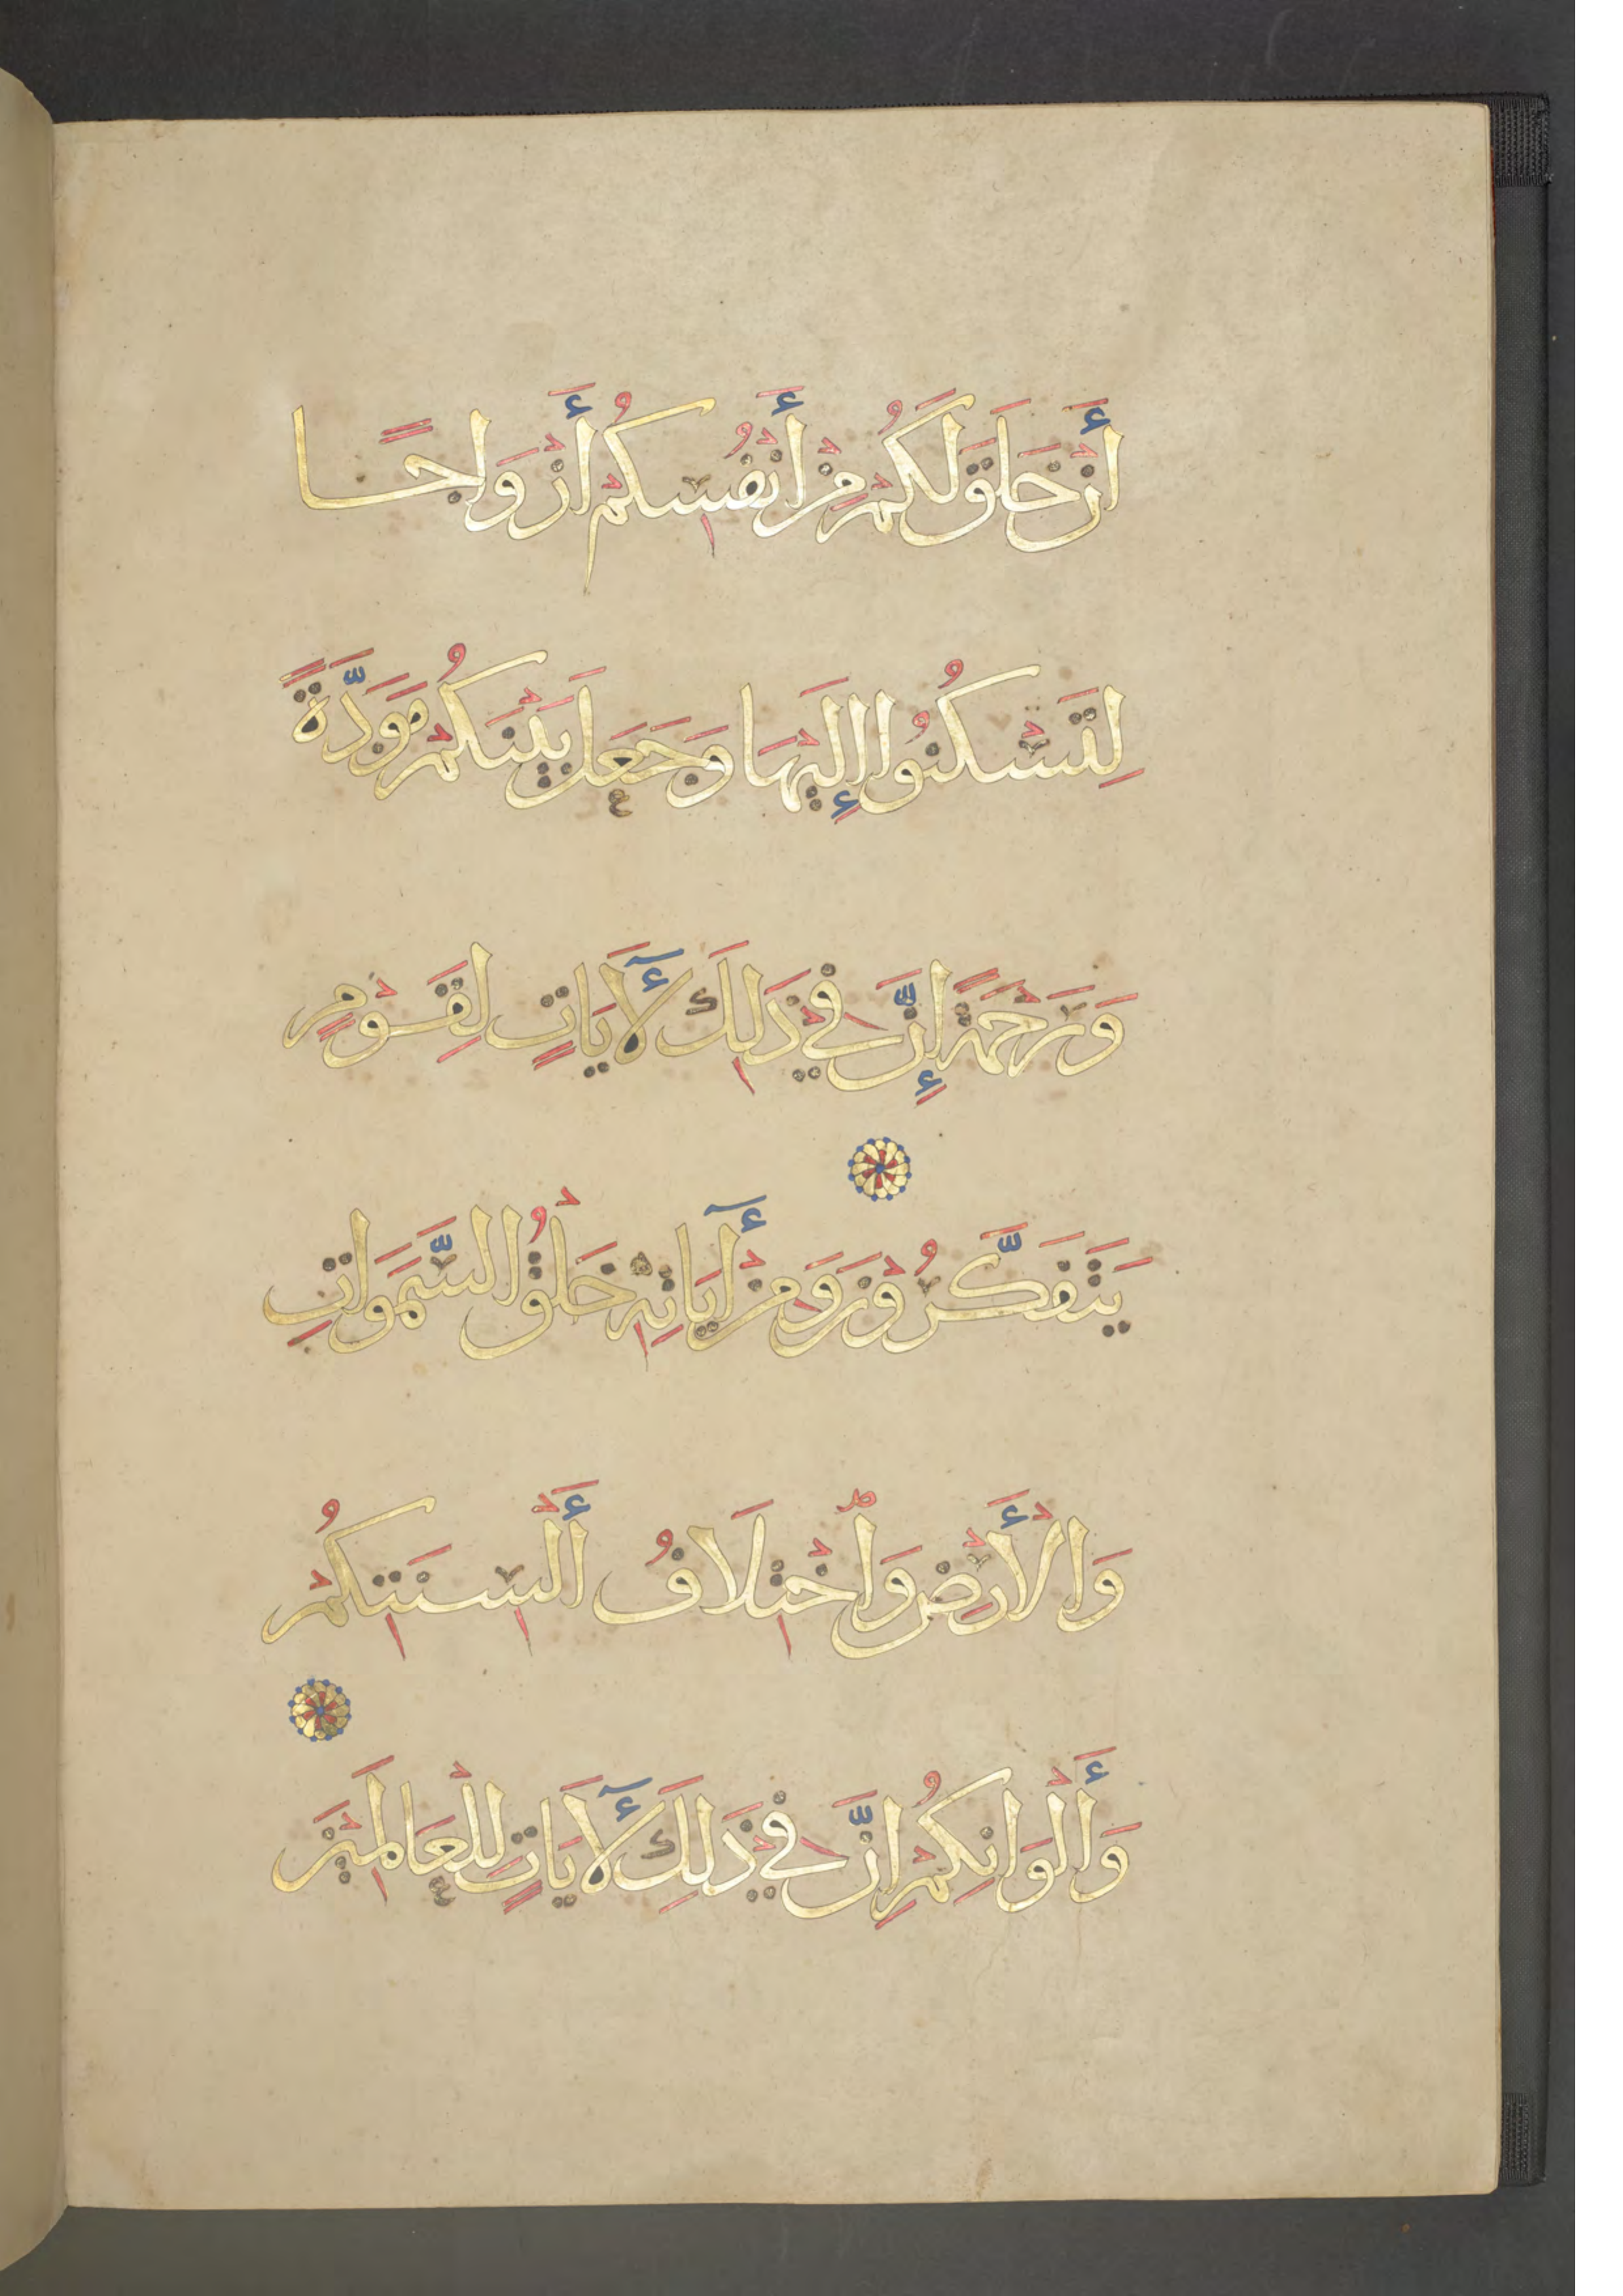 أَنْ خَلَقَ لَكُمْ مِنْ أَنْفُسِكُمْ أَزْوَاجًا
لِتَسْكُنُوا إِلَيْهَا وَجَعَلَ بَيْنَكُمْ مَوَدَّةً
وَرَحْمَةً إِنَّ فِي ذَلِكَ لَأَيَاتٍ لِقَوْمٍ
يَتَفَكَّرُونَ وَمِنْ أَيَاتِهِ خَلْقُ السَّمَوَاتِ
وَالْأَرْضِ وَاخْتِلَافُ أَلْسِنَتِكُمْ
وَأَلْوَانِكُمْ إِنَّ فِي ذَلِكَ لَأَيَاتٍ لِلْعَالَمِيْنَ